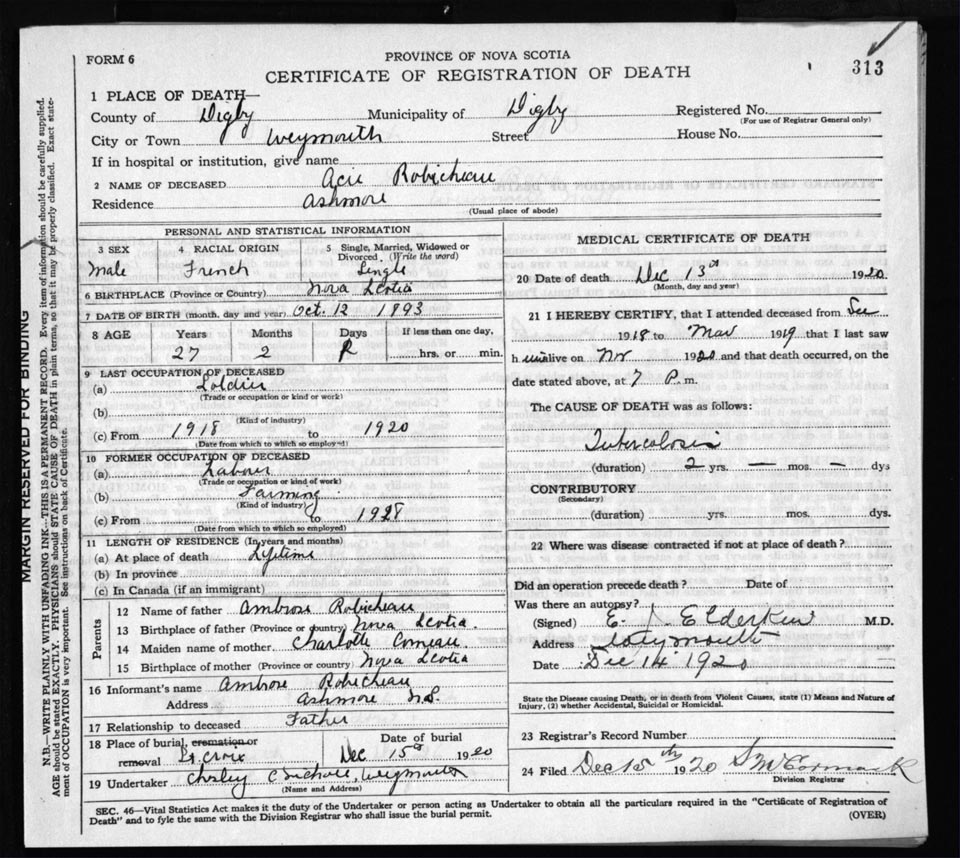 FORM 6
PROVINCE OF NOVA SCOTIA
CERTIFICATE OF REGISTRATION OF DEATH
313
1 PLACE OF DEATH—
County of Digby Municipality of Digby Registered No.
(For use of Registrar General only)
City or Town Weymouth Street House No.
If in hospital or institution, give name
2 NAME OF DECEASED Acie Robicheau
Residence Ashmore
(Usual place of abode)
PERSONAL AND STATISTICAL INFORMATION
3 SEX 4 RACIAL ORIGIN 5 Single, Married, Widowed or Divorced. (Write the word)
Male French Single
6 BIRTHPLACE (Province or Country) Nova Scotia
7 DATE OF BIRTH (month, day and year) Oct. 12 1893
8 AGE Years Months Days If less than one day,
27 2 hrs. or min.
9 LAST OCCUPATION OF DECEASED
(a) Soldier
(Trade or occupation or kind or work)
(b)
(Kind of industry)
(c) From 1918 to 1920
(Date from which to which so employed)
10 FORMER OCCUPATION OF DECEASED
(a) Labour
(Trade or occupation or kind of work)
(b) Farming
(Kind of industry)
(c) From to 1928
(Date from which to which so employed)
11 LENGTH OF RESIDENCE (In years and months)
(a) At place of death Lifetime
(b) In province
(c) In Canada (if an immigrant)
Parents
12 Name of father Ambrose Robicheau
13 Birthplace of father (Province or country) Nova Scotia
14 Maiden name of mother Charlotte Comeau
15 Birthplace of mother (Province or country) Nova Scotia
16 Informant's name Ambrose Robicheau
Address Ashmore N.S.
17 Relationship to deceased Father
18 Place of burial, cremation or removal St. Croix Date of burial Dec 15th 1920
19 Undertaker Charley Nichols, Weymouth
(Name and Address)
MEDICAL CERTIFICATE OF DEATH
20 Date of death Dec 13th 1920
(Month, day and year)
21 I HEREBY CERTIFY, that I attended deceased from Dec
1918 to Mar 1919 that I last saw
h im alive on Nov 1920 and that death occurred, on the
date stated above, at 7 P.m.
The CAUSE OF DEATH was as follows:
Tuberculosis
(duration) 2 yrs. — mos. — dys
CONTRIBUTORY
(Secondary)
(duration) yrs. mos. dys.
22 Where was disease contracted if not at place of death?
Did an operation precede death? Date of
Was there an autopsy?
(Signed) E. Elderkin M.D.
Address Weymouth
Date Dec 14 1920
State the Disease causing Death, or in death from Violent Causes, state (1) Means and Nature of
Injury, (2) whether Accidental, Suicidal or Homicidal.
23 Registrar's Record Number
24 Filed Dec 15th 1920 S McCormack
Division Registrar
SEC. 46—Vital Statistics Act makes it the duty of the Undertaker or person acting as Undertaker to obtain all the particulars required in the "Certificate of Registration of
Death" and to fyle the same with the Division Registrar who shall issue the burial permit.
(OVER)
MARGIN RESERVED FOR BINDING
N.B.—WRITE PLAINLY WITH UNFADING INK—THIS IS A PERMANENT RECORD. Every item of information should be carefully supplied.
AGE should be stated EXACTLY. PHYSICIANS should STATE CAUSE OF DEATH in plain terms, so that it may be properly classified. Exact state-
ment of OCCUPATION is very important. See instructions on back of Certificate.